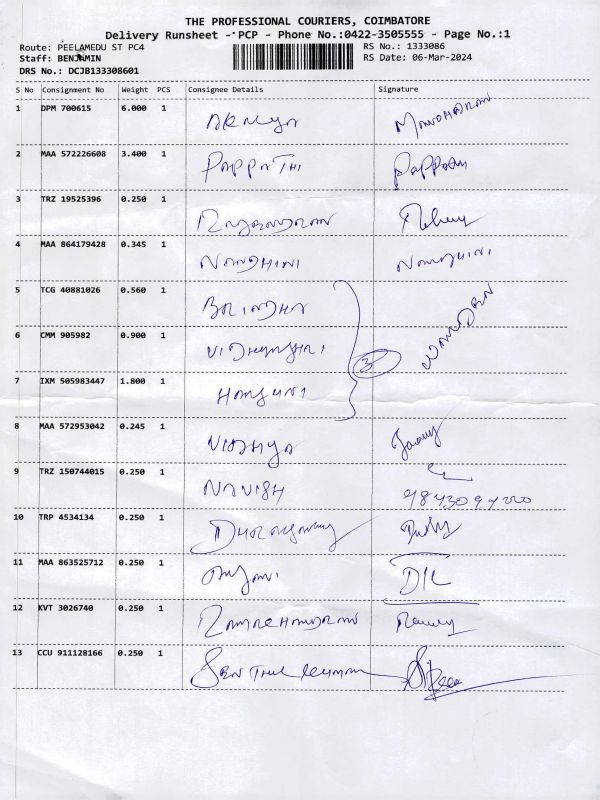 THE PROFESSIONAL COURIERS, COIMBATORE
Delivery Runsheet - PCP - Phone No.:0422-3505555 - Page No.:1
Route: PEELAMEDU ST PC4 RS No.: 1333086
Staff: BENJAMIN RS Date: 06-Mar-2024
DRS No.: DCJB133308601
S No Consignment No Weight PCS Consignee Details Signature
1 DPM 700615 6.000 1 MANOHARAN
2 MAA 572226608 3.400 1 PAPPATHI
3 TRZ 19525396 0.250 1
4 MAA 864179428 0.345 1 NANDHINI NANDHINI
5 TCG 40881026 0.560 1 BRINDHA
6 CMM 905982 0.900 1 3 WARDEN
7 IXM 505983447 1.800 1
8 MAA 572953042 0.245 1 VIDHYA
9 TRZ 150744015 0.250 1 NAVISH
10 TRP 4534134 0.250 1
11 MAA 863525712 0.250 1
12 KVT 3026740 0.250 1 RAMACHANDRAN
13 CCU 911128166 0.250 1